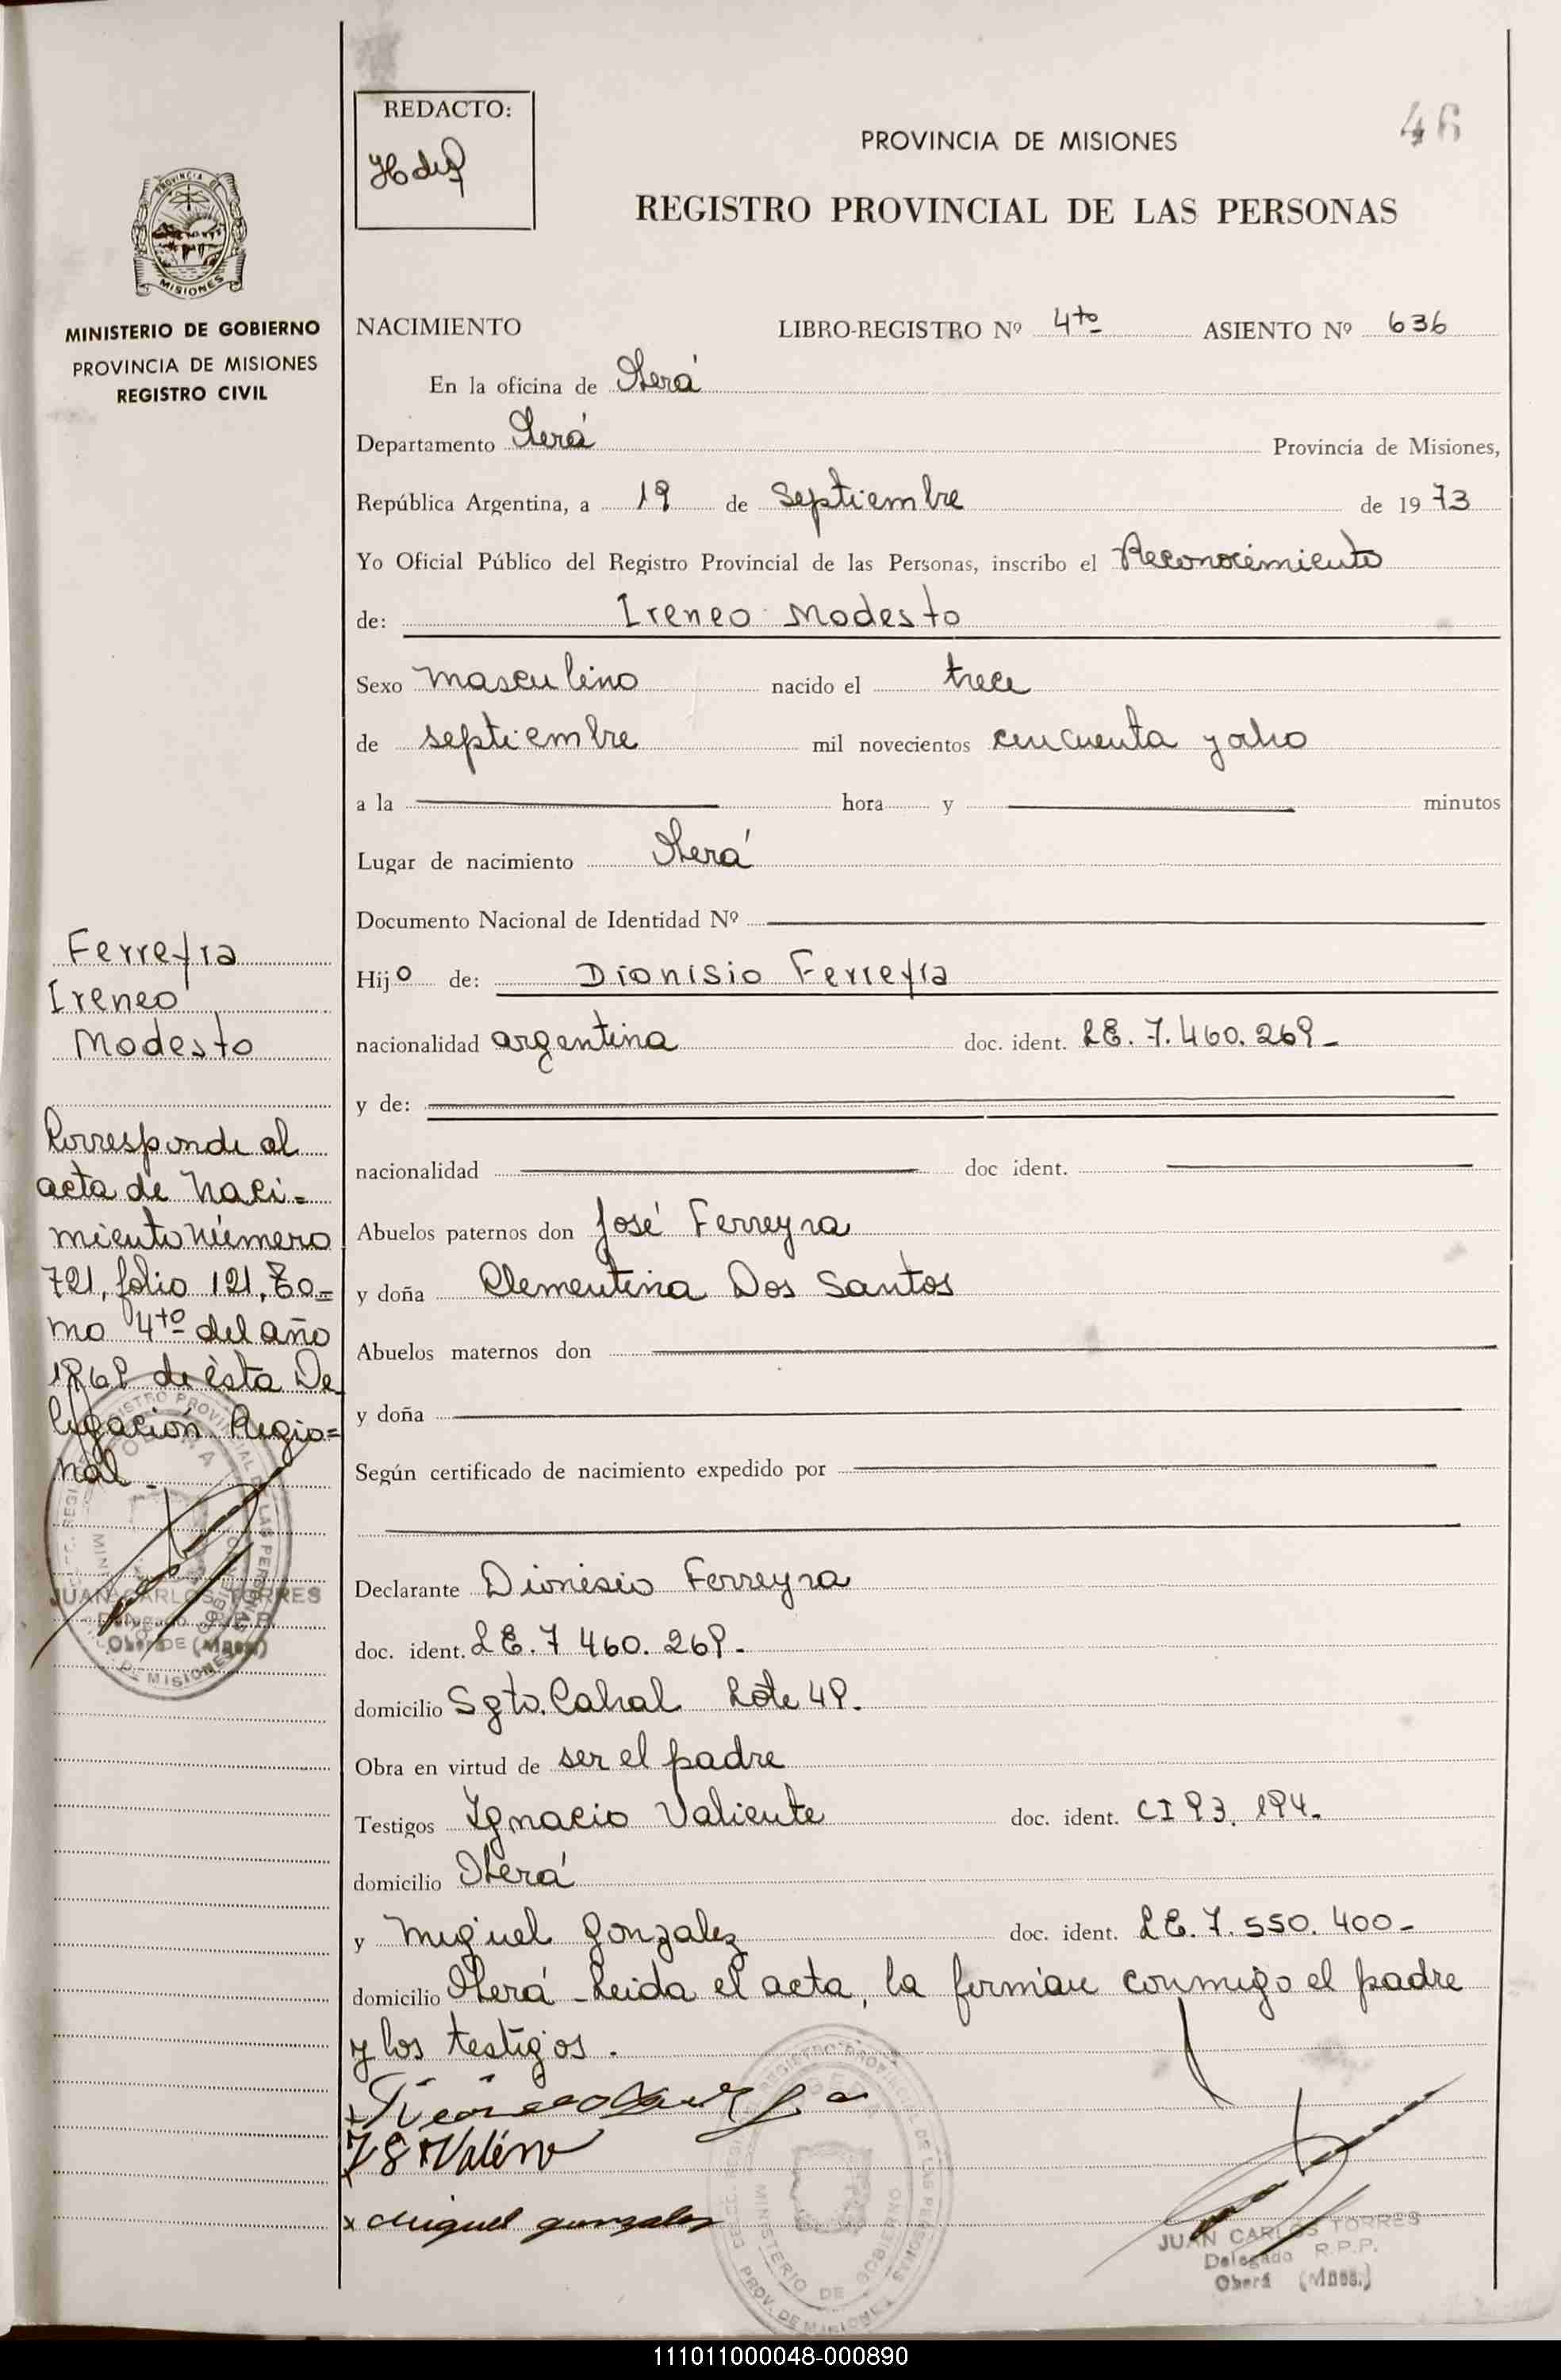 46
REDACTO:
PROVINCIA DE MISIONES
REGISTRO PROVINCIAL DE LAS PERSONAS
MISIONES
MINISTERIO DE GOBIERNO
PROVINCIA DE MISIONES
REGISTRO CIVIL
NACIMIENTO LIBRO-REGISTRO Nº 4to ASIENTO Nº 636
En la oficina de Oberá
Departamento Oberá Provincia de Misiones,
República Argentina, a 19 de septiembre de 1973
Yo Oficial Público del Registro Provincial de las Personas, inscribo el Reconocimiento
de: Ireneo Modesto
Sexo masculino nacido el trece
de septiembre mil novecientos cincuenta y ocho
a la hora y minutos
Lugar de nacimiento Oberá
Documento Nacional de Identidad Nº
Hijo de: Dionisio Ferreyra
nacionalidad argentina doc. ident. LE. 7.460.269-
y de:
nacionalidad doc ident.
Abuelos paternos don José Ferreyra
y doña Clementina Dos Santos
Abuelos maternos don
y doña
Según certificado de nacimiento expedido por
Declarante Dionisio Ferreyra
doc. ident. LE. 7 460.269-
domicilio Sgto. Cabral Lote 49.
Obra en virtud de ser el padre
Testigos Ignacio Valiente doc. ident. CI 93.194.
domicilio Oberá
y Miguel Gonzalez doc. ident. LE. 7.550.400-
domicilio Oberá - Leida el acta, la firman conmigo el padre
y los testigos.
x Miguel gonzales
JUAN CARLOS TORRES
Delegado R.P.P.
Oberá (Mnes.)
Ferreyra
Ireneo
Modesto
Corresponde al
acta de Naci=
miento número
721, folio 121, To=
mo 4to del año
1969 de ésta De
legación Regio=
nal.
JUAN CARLOS TORRES
Delegado R.P.P.
Oberá (Mnes.)
111011000048-000890